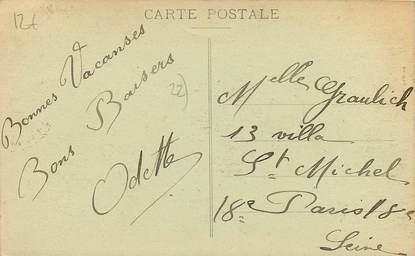 12€
CARTE POSTALE
Bonnes Vacanses
Bons Baisers
Odette
22)
Melle Graulich
13 villa
St Michel
18e Paris 18e
Seine